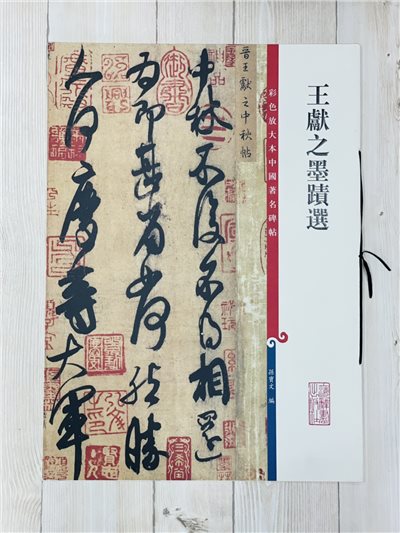 王獻之墨蹟選
彩色放大本中國著名碑帖
孫寶文 編
晉王獻之中秋帖
中秋不復不得相還
為即甚省如何然勝
人何慶等大軍